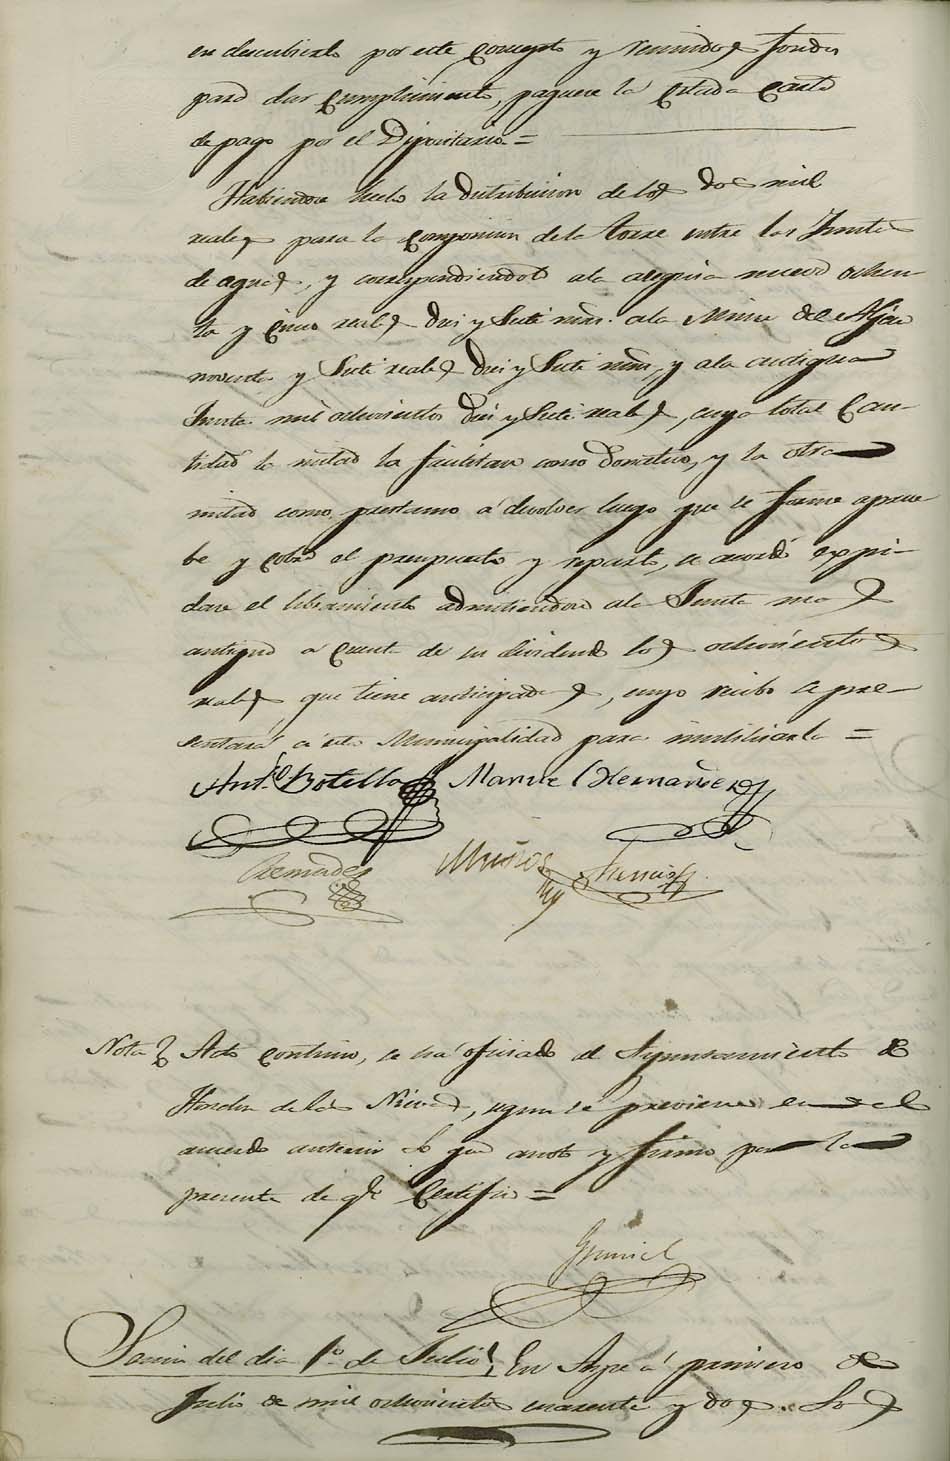 en descubierto por este Concepto y reunidos fondos
para dar Cumplimiento, paguese la Citada Carta
de pago por el Depositario =
Habiendose hecho la distribucion de los dos mil
reales para la Composicion de la Torre entre las Juntas
de aguas, y correspondiendole a la acequia nueva ochen-
ta y Cinco reales diez y Siete mrs. a la Mina del
noventa y Siete reales diez y Siete mrs, y a la antigua
Junta mil ochocientos diez y Siete reales, cuya total Can-
tidad la mitad la facilitan como Donativo, y la otra
mitad como prestamo á devolver luego que se forme aprue
be y cobre el presupuesto y reparto, se acordó expi-
dase el libramiento admitiendose a la Junta mas
antigua a Cuenta de su dividendo los ochocientos
reales que tiene anticipados, cuyo recibo se pre-
sentará á esta Municipalidad para inutilizarlo =
Ant.º Botella Manuel Hernandez
Bernades Muñoz
Nota Acto Continuo, se ha oficiado al Ayuntamiento de
Hondon de las Nieves, segun se previene en el
acuerdo anterior Lo que anoto y firmo por la
presente de q.e Certifico =
Sesion del dia 1.º de Julio En Aspe á primero de
Julio de mil ochocientos cuarenta y dos. Los